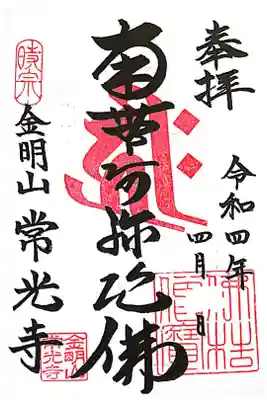 奉拝
令和四年
四月 日
南無阿弥陀佛
時宗
金明山 常光寺
金明山
常光寺